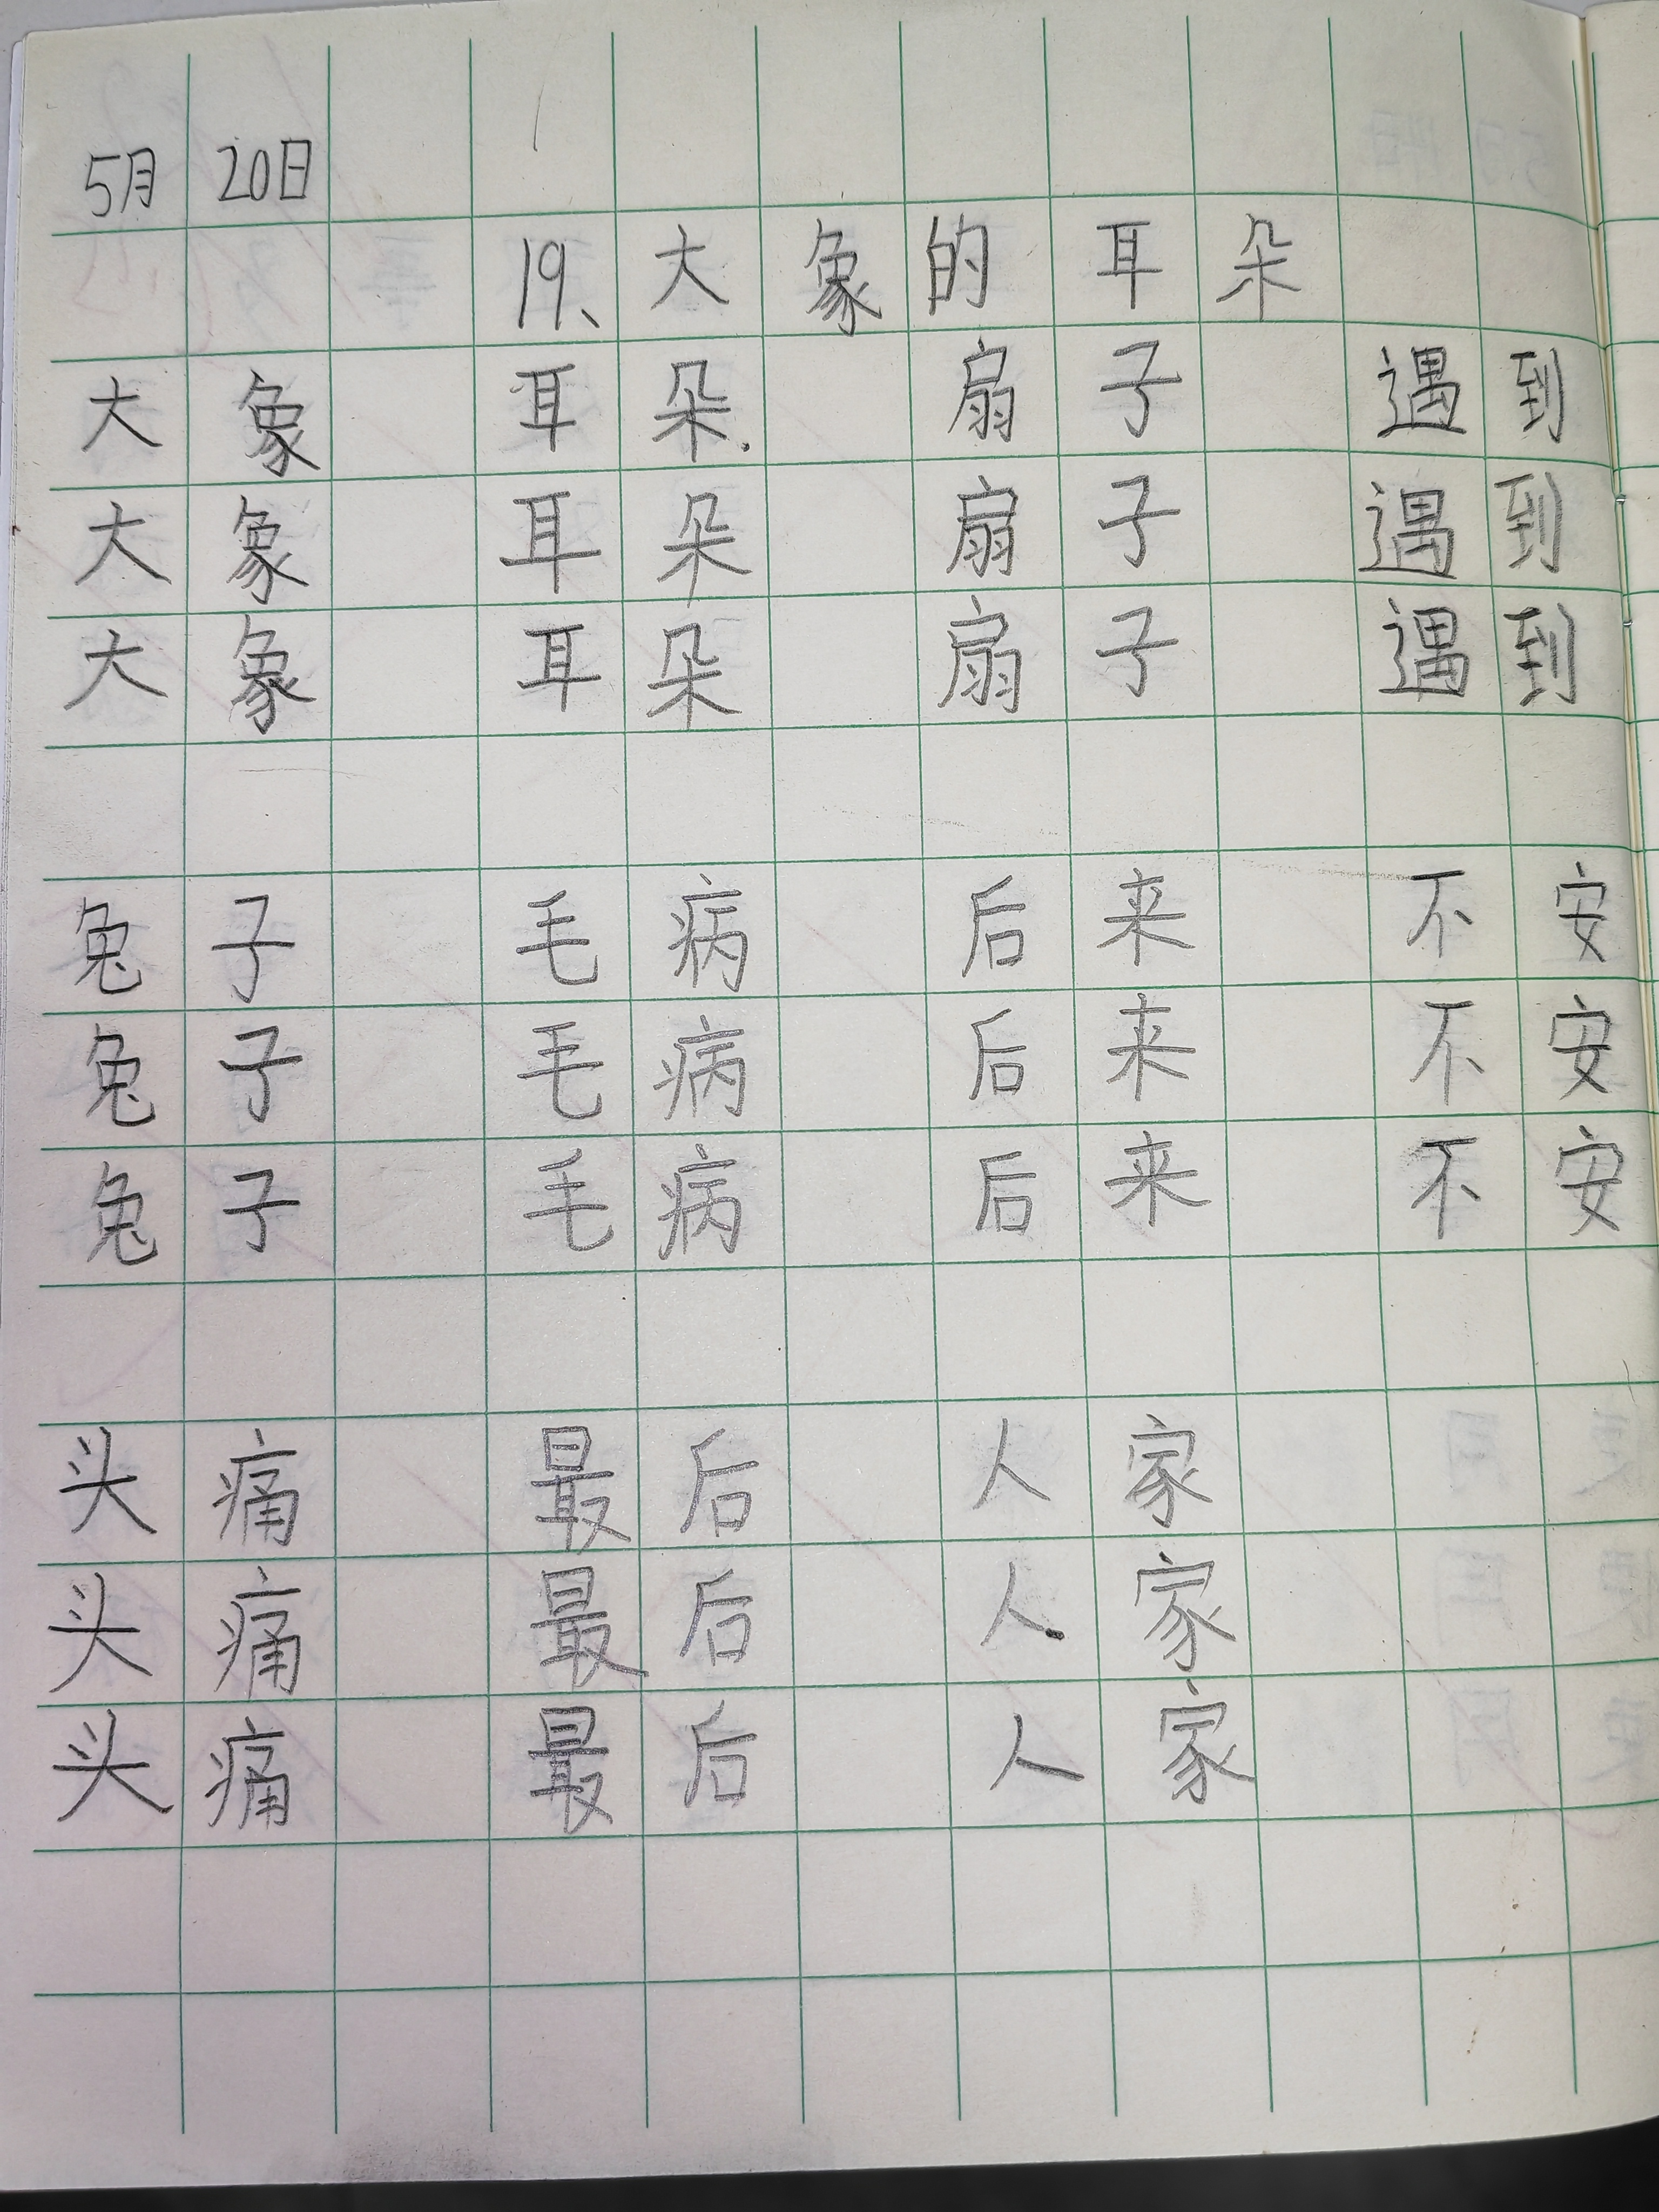 5月 20日
19、大象的耳朵
大象 耳朵 扇子 遇到
大象 耳朵 扇子 遇到
大象 耳朵 扇子 遇到
兔子 毛病 后来 不安
兔子 毛病 后来 不安
兔子 毛病 后来 不安
头痛 最后 人家
头痛 最后 人家
头痛 最后 人家